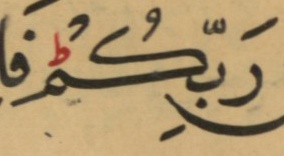 رَبِّكُمْ ۖ ط فَا